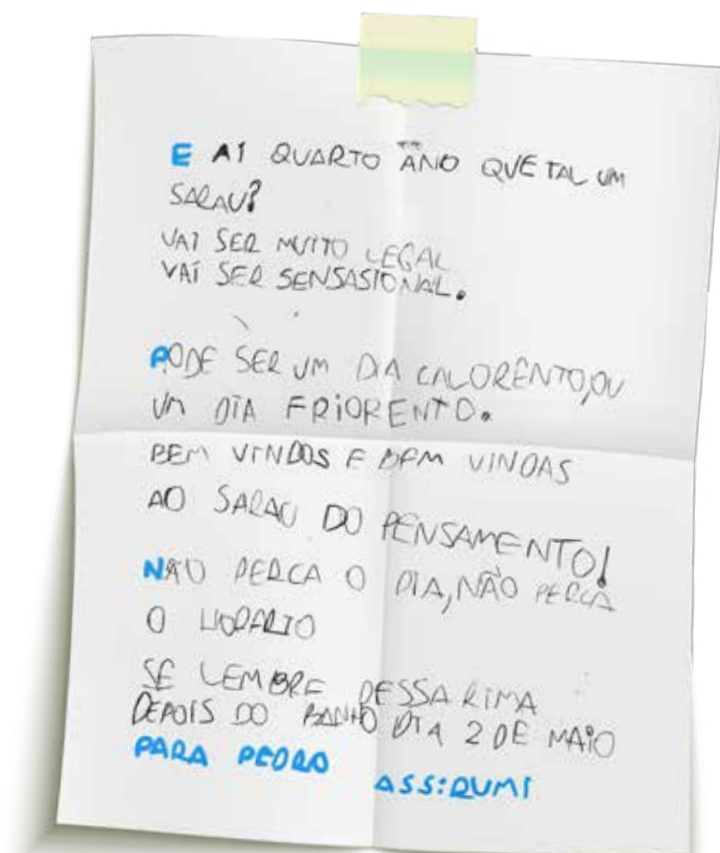 E AI QUARTO ANO QUE TAL UM
SARAU?
VAI SER MUITO LEGAL
VAI SER SENSASIONAL.
PODE SER UM DIA CALORENTO, OU
UM DIA FRIORENTO.
BEM VINDOS E BEM VINDAS
AO SARAU DO PENSAMENTO!
NÃO PERCA O DIA, NÃO PERCA
O HORARIO
SE LEMBRE DESSA RIMA
DEPOIS DO BANHO DIA 2 DE MAIO
PARA PEDRO ASS:RUMI